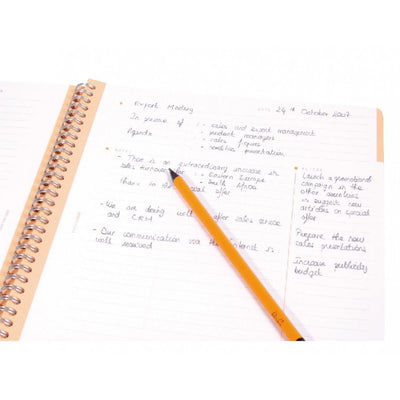 Export Meeting
24th October 2007
In presence of : - sales and event management
- product managers
Agenda : - sales figures
- sensitive presentation
- There is an extraordinary increase in
sales
: - Eastern Europe
- South Africa
thanks to the special offer
- We are doing well after sales service
and CRM
- Our communication via the internet is
well received
Launch a promotional
campaign in the
other countries
→ suggest new
articles on special
offer
Prepare the new
sales presentations
Increase publicity
budget